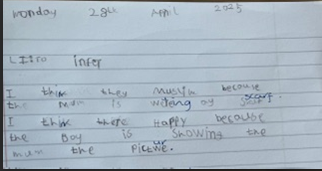 Monday 28th April 2025
LI: to infer
I thin they Muslim because
the mum is wdeng a scarf.
I think there Happy because
the Boy is Showing the
mum the Pictur.